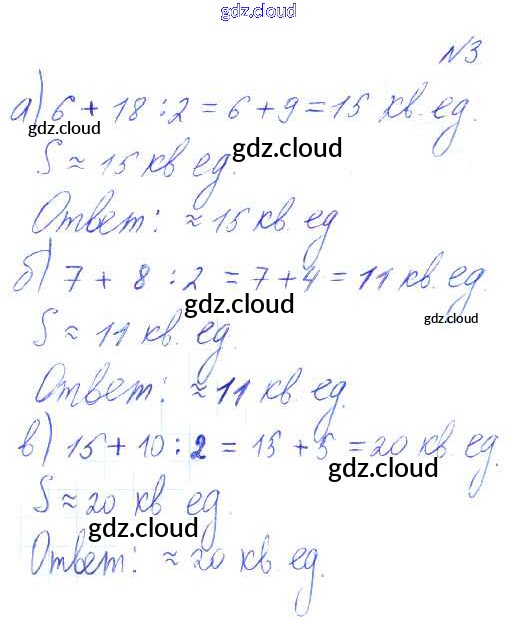 gdz.cloud
№3
а) 6 + 18 : 2 = 6 + 9 = 15 кв. ед.
gdz.cloud
S ≈ 15 кв. ед.
gdz.cloud
Ответ: ≈ 15 кв. ед
б) 7 + 8 : 2 = 7 + 4 = 11 кв. ед.
gdz.cloud
S ≈ 11 кв. ед.
gdz.cloud
Ответ: ≈ 11 кв. ед.
в) 15 + 10 : 2 = 15 + 5 = 20 кв. ед.
gdz.cloud
S ≈ 20 кв. ед.
gdz.cloud
Ответ: ≈ 20 кв. ед.